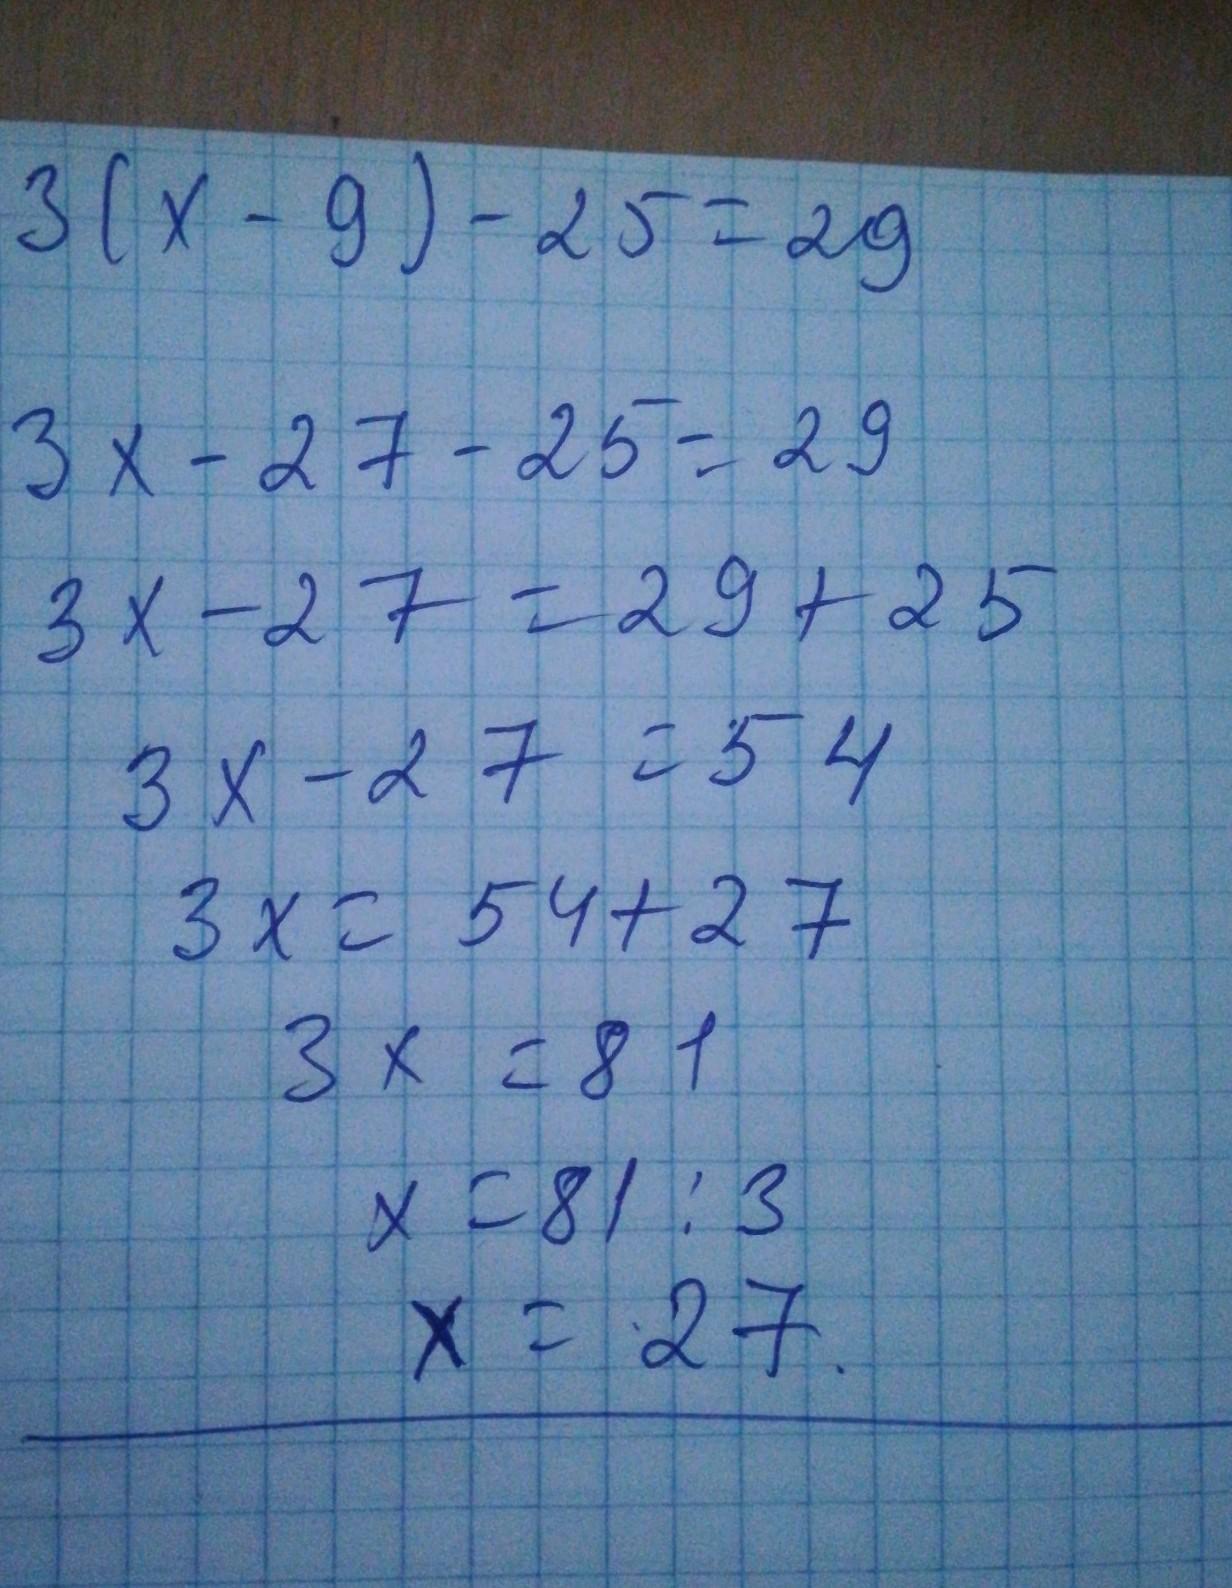 3(x-9)-25=29
3x-27-25=29
3x-27=29+25
3x-27=54
3x=54+27
3x=81
x=81:3
x=27.